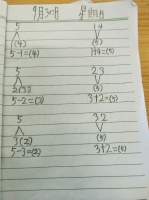 9月30日 星期四
5 14
(4) (5)
5-1=(4) 1+4=(5)
5 23
2(3) (5)
5-2=(3) 3+2=(5)
5 32
3(2) (5)
5-3=(2) 3+2=(5)